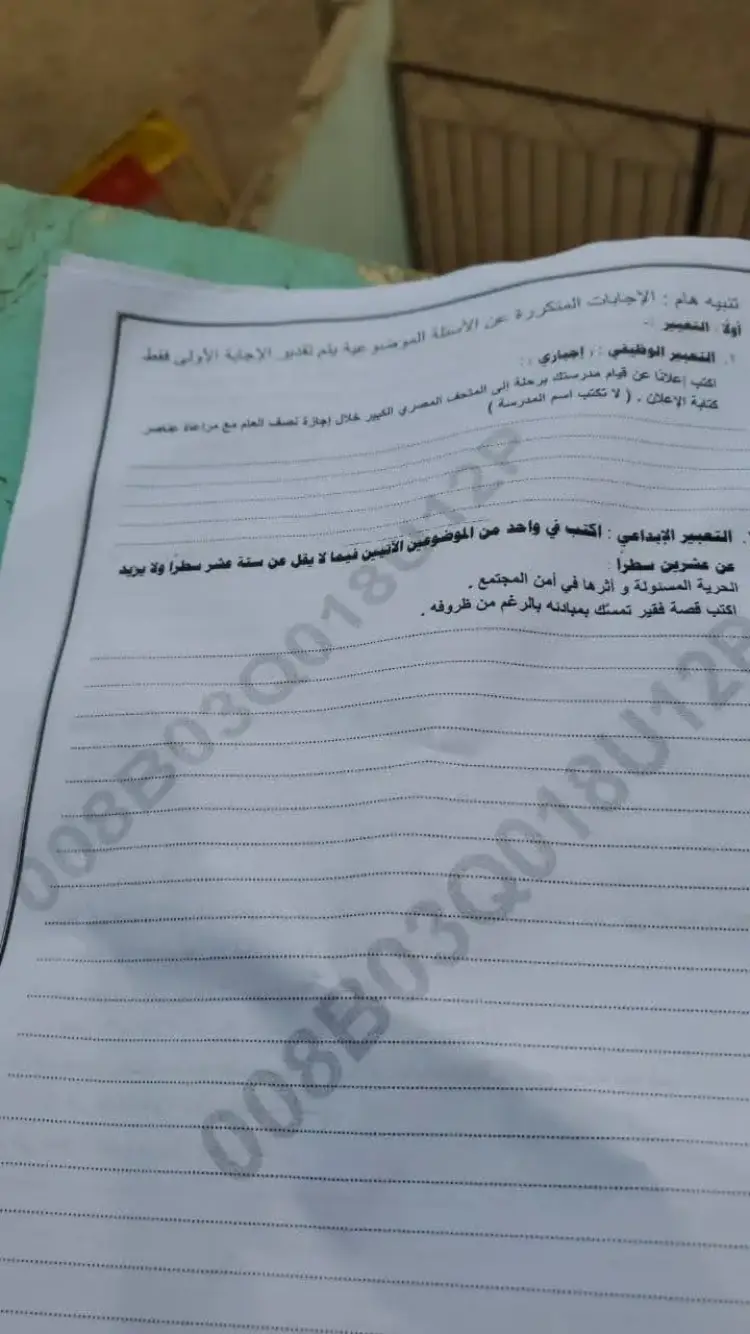 تنبيه هام : الإجابات المتكررة عن الأسئلة الموضوعية يتم تقدير الإجابة الأولى فقط
أولاً : التعبير :-
١. التعبير الوظيفي : ( إجباري ) :
اكتب إعلانًا عن قيام مدرستك برحلة إلى المتحف المصري الكبير خلال إجازة نصف العام مع مراعاة عناصر
كتابة الإعلان . ( لا تكتب اسم المدرسة )
. التعبير الإبداعي : اكتب في واحد من الموضوعين الآتيين فيما لا يقل عن ستة عشر سطرًا ولا يزيد
عن عشرين سطرا :
الحرية المسئولة و أثرها في أمن المجتمع .
اكتب قصة فقير تمسك بمبادئه بالرغم من ظروفه .
008B03Q018U12P
008B03Q018U12P